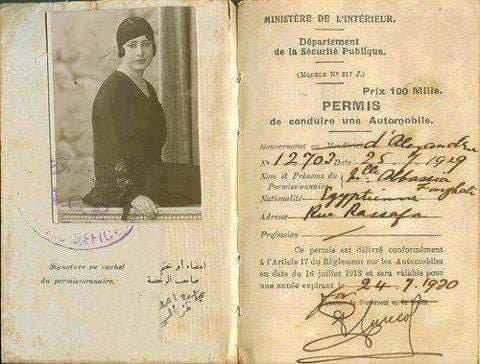 Signature ou cachet
du permissionnaire.
امضاء أو ختم
صاحب الرخصة
MINISTÈRE DE L'INTÉRIEUR.
Département
de la Sécurité Publique.
(MODÈLE Nº 217 J.)
Prix 100 Mills.
PERMIS
de conduire une Automobile.
Gouvernorat ou Moudirieh d'Alexandrie
Nº 12703 Date 25.7.1929
Nom et Prénoms du Mlle Abbassia
Permissionnaire
Nationalité Egyptienne
Adresse Rue Rassafa
Profession
Ce permis est délivré conformément
à l'Article 17 du Règlement sur les Automobiles
en date du 16 juillet 1913 et sera valable pour
une année expirant le 24.7.1930